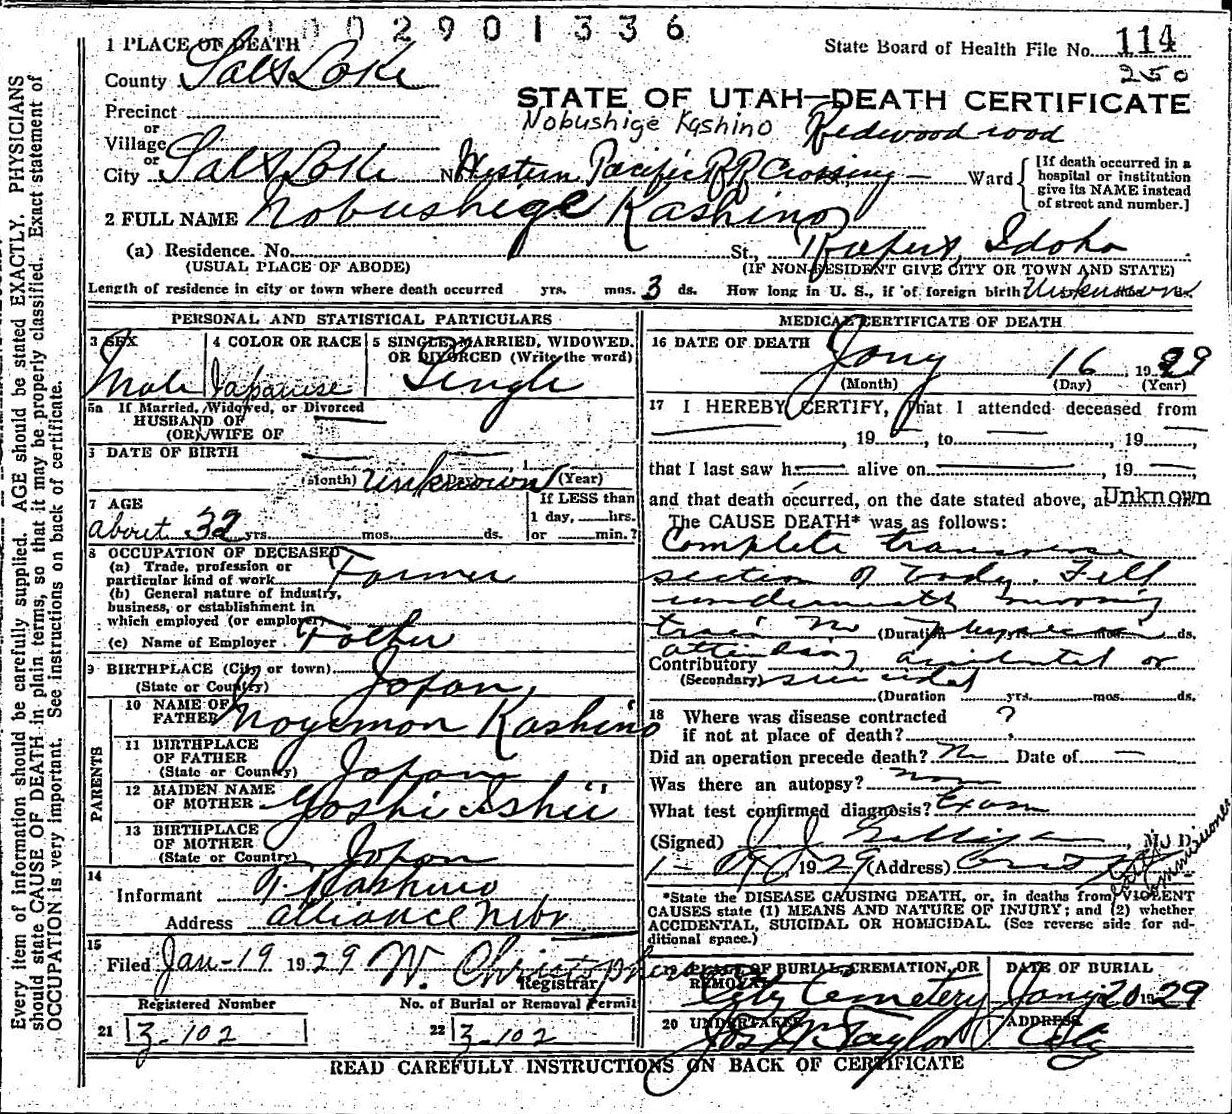 0 0 2 9 0 1 3 3 6
1 PLACE OF DEATH
State Board of Health File No. 114
County Salt Lake
250
STATE OF UTAH—DEATH CERTIFICATE
Precinct
or
Nobushige Kashino Redwood road
Village
or
City Salt Lake No. Western Pacific RR Crossing — Ward
[If death occurred in a
hospital or institution
give its NAME instead
of street and number.]
2 FULL NAME Nobushige Kashino
(a) Residence. No. St., Rupert, Idaho
(USUAL PLACE OF ABODE) (IF NON-RESIDENT GIVE CITY OR TOWN AND STATE)
Length of residence in city or town where death occurred yrs. mos. 3 ds. How long in U. S., if of foreign birth Unknown ds.
PERSONAL AND STATISTICAL PARTICULARS
3 SEX 4 COLOR OR RACE 5 SINGLE, MARRIED, WIDOWED,
OR DIVORCED (Write the word)
Male Japanese Single
5a If Married, Widowed, or Divorced
HUSBAND OF
(OR) WIFE OF
6 DATE OF BIRTH
(Month) Unknown (Year)
7 AGE If LESS than
1 day, hrs.
about 32 yrs. mos. ds. or min.?
8 OCCUPATION OF DECEASED
(a) Trade, profession or
particular kind of work Farmer
(b) General nature of industry,
business, or establishment in
which employed (or employer)
(c) Name of Employer Father
9 BIRTHPLACE (City or town)
(State or Country) Japan
PARENTS
10 NAME OF
FATHER Noyemon Kashino
11 BIRTHPLACE
OF FATHER
(State or Country) Japan
12 MAIDEN NAME
OF MOTHER Yoshi Ishii
13 BIRTHPLACE
OF MOTHER
(State or Country) Japan
14
Informant T. Kashino
Address Alliance Nebr
15
Filed Jan-19 1929 W. Christopherson
Registrar
Registered Number No. of Burial or Removal Permit
21 Z-102 22 Z-102
MEDICAL CERTIFICATE OF DEATH
16 DATE OF DEATH Jany 16, 1929
(Month) (Day) (Year)
17 I HEREBY CERTIFY, That I attended deceased from
, 19 , to , 19
that I last saw h alive on , 19
and that death occurred, on the date stated above, at Unknown
The CAUSE DEATH* was as follows:
Complete transverse
section of body. Fell
underneath moving
train No (Duration physician mos. ds.
attending accidental or
Contributory
(Secondary) suicidal
(Duration yrs. mos. ds.
18 Where was disease contracted
if not at place of death? ?
Did an operation precede death? No Date of —
Was there an autopsy? none
What test confirmed diagnosis? Exam
(Signed) M. D.
1929 (Address) Commissioner
*State the DISEASE CAUSING DEATH, or, in deaths from VIOLENT
CAUSES state (1) MEANS AND NATURE OF INJURY; and (2) whether
ACCIDENTAL, SUICIDAL OR HOMICIDAL. (See reverse side for ad-
ditional space.)
19 PLACE OF BURIAL, CREMATION, OR
REMOVAL
DATE OF BURIAL
City Cemetery Jany 20 1929
20 UNDERTAKER ADDRESS
Jos Wm Taylor City
READ CAREFULLY INSTRUCTIONS ON BACK OF CERTIFICATE
Every item of information should be carefully supplied. AGE should be stated EXACTLY. PHYSICIANS
should state CAUSE OF DEATH in plain terms, so that it may be properly classified. Exact statement of
OCCUPATION is very important. See instructions on back of certificate.